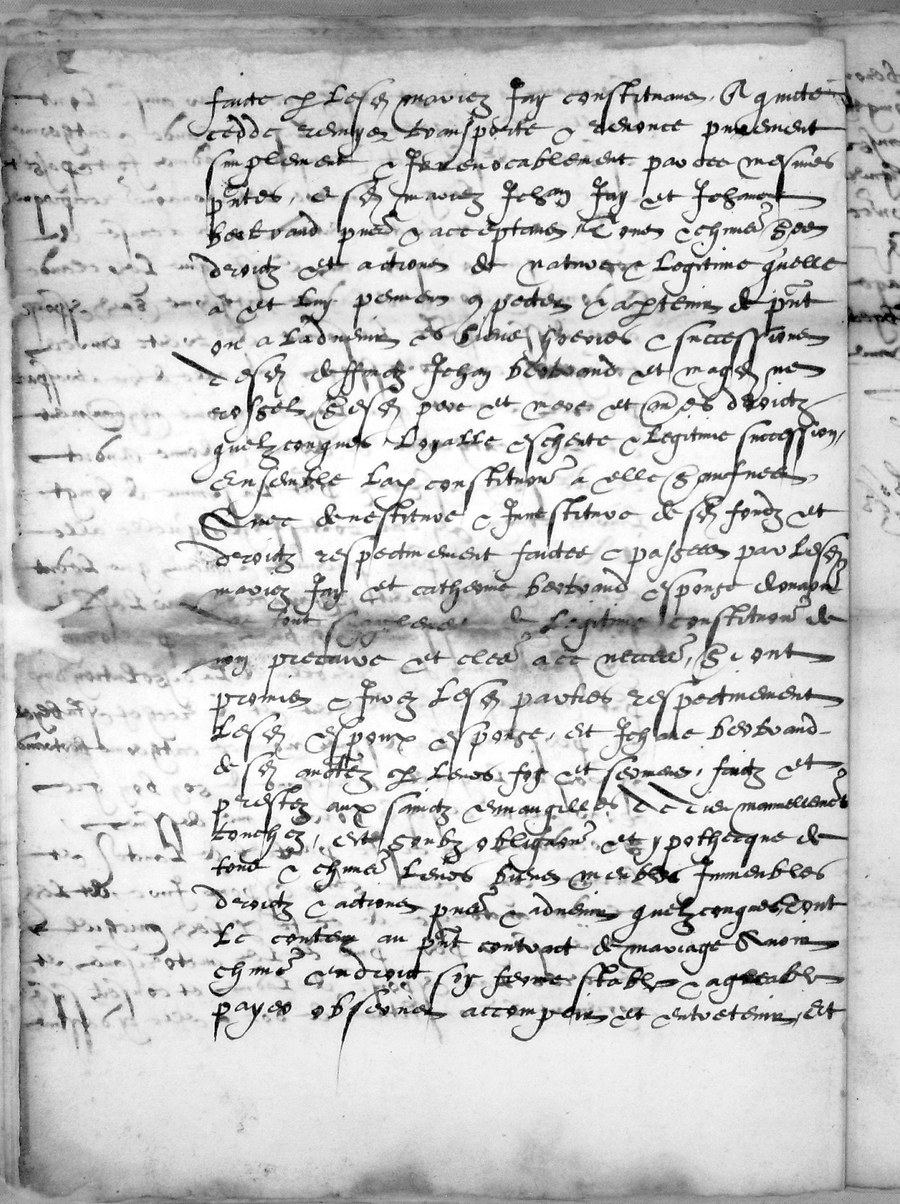 faicte p lesd mariez Jay constituans, A quicte
cedde remys transporte & renonce purement
simplement & Irrevocablement par ces mesmes
pntes, esd mariez Jehan Jay et Jehanne
bertrand pns & acceptans, Tous & chms ses
droictz et actions de nature & legitime quelle
a et luy peuvent 9peter & aptenir de pnt
ou a ladvenir es biens hoeries & successions
desd deffunctz Jehan bertrand et
sesd pere et mere et aues droictz
quelzconques loyalle escheute & legitime succession,
Ensemble la constituon a elle
Avec devestiture & Investiture desd fondz et
droictz respectivement faictes & passees par lesd
mariez Jay et catherine bertrand espouse
tout legitime constituon de
nom precaire et clees ace necces, Et ont
promis & Jurez lesd parties respectivement
lesd espoux espouse, et Jehane bertrand
desd auctez p leurs foy et serment, faictz et
prestez aux sainctz evvangilles manuellement
touchez, Et soubz obligaon et ypothecque de
tous & chms leurs biens meubles Immeubles
droictz & actions pns & advenir quelzconques, tout
le contenu au pnt contract de mariage Avoir
chms endroict soy ferme stable & agreable
payer observer accomplir et entretenir, Et